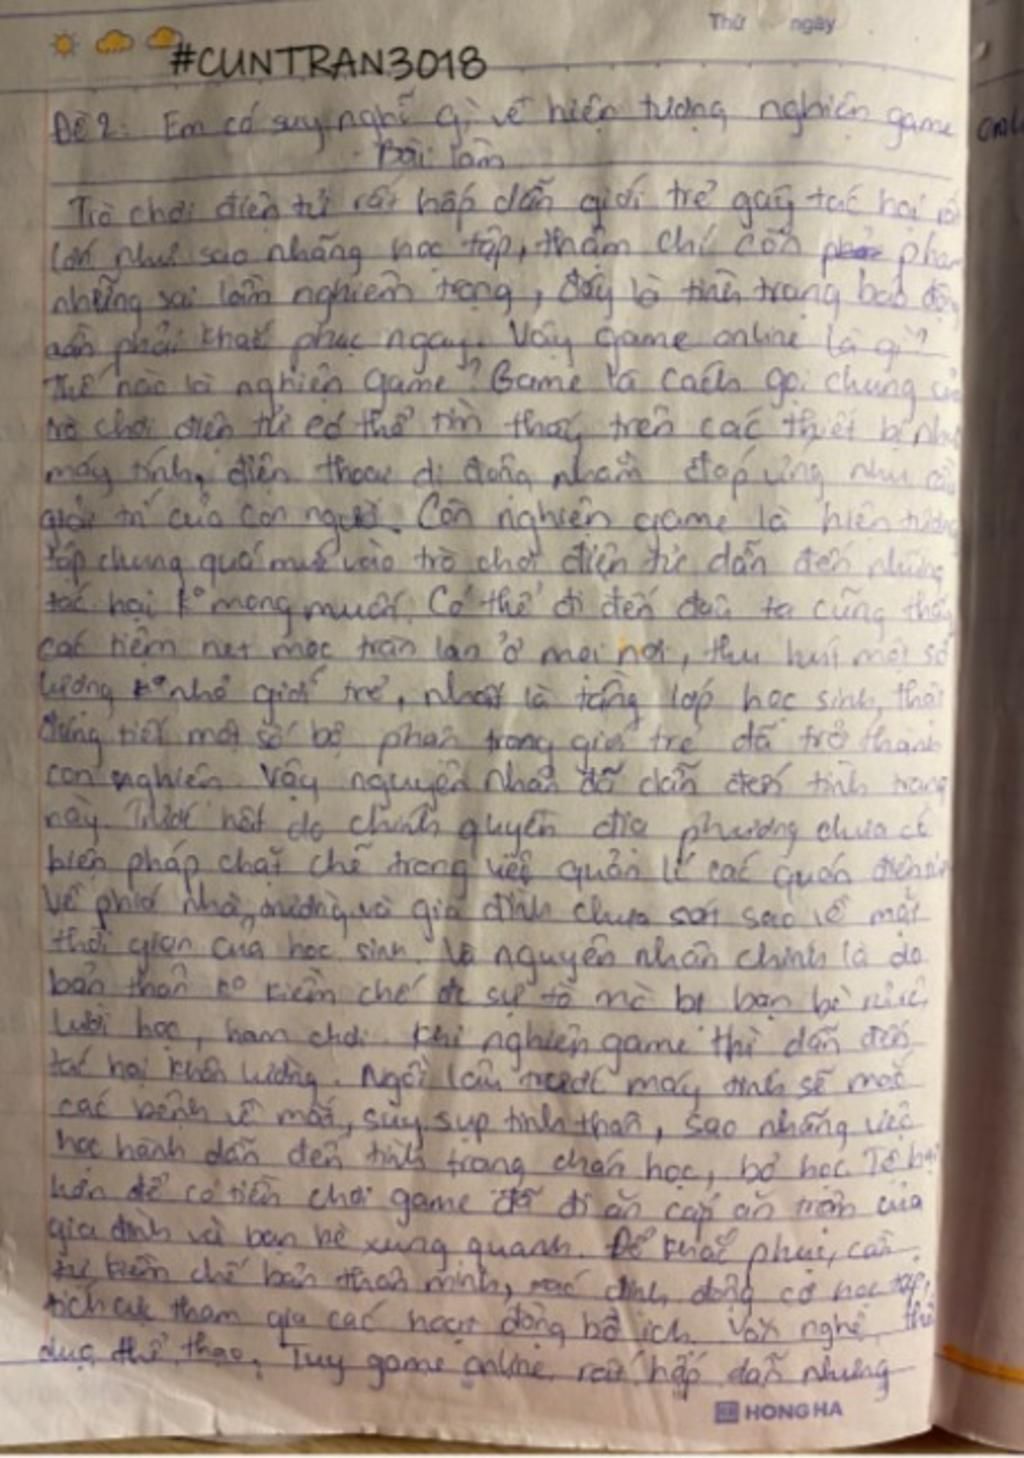 Thứ ngày
#CUNTRAN3018
Đề 2: Em có suy nghĩ gì về hiện tượng nghiện game
Bài làm
Trò chơi điện tử rất hấp dẫn giới trẻ gây tác hại
lớn như sao nhãng học tập, thậm chí còn phạm
những sai lầm nghiêm trọng, đây là tình trạng báo độ
cần phải khắc phục ngay. Vậy game online là gì?
Thế nào là nghiện game? Game là cách gọi chung củ
trò chơi điện tử có thể tìm thấy trên các thiết bị như
máy tính, điện thoại di động nhằm đáp ứng nhu cầu
giải trí của con người. Còn nghiện game là hiện tượng
tập chung quá mức vào trò chơi điện tử dẫn đến những
tác hại ko mong muốn. Có thể đi đến đâu ta cũng thấy
các tiệm net mọc tràn lan ở mọi nơi, thu hút một số
lượng ko nhỏ giới trẻ, nhất là tầng lớp học sinh, thật
đáng tiếc một số bộ phận trong giới trẻ đã trở thành
con nghiện. Vậy nguyên nhân đã dẫn đến tình trạng
này. Trước hết do chính quyền địa phương chưa có
biện pháp chặt chẽ trong việc quản lí các quán điện tử
Về phía nhà trường và gia đình chưa sát sao về mặt
thời gian của học sinh. Và nguyên nhân chính là do
bản thân ko kiềm chế sự tò mò bị bạn bè
lười học, ham chơi. Khi nghiện game thì dẫn đến
tác hại khôn lường. Ngồi lâu trước máy tính sẽ mắc
các bệnh về mắt, suy sụp tinh thần, sao nhãng việc
học hành dẫn đến tình trạng chán học, bỏ học. Tệ hại
hơn để có tiền chơi game đã đi ăn cắp ăn trộm của
gia đình và bạn bè xung quanh. Để khắc phục, cần
tự kiềm chế bản thân mình, xác định động cơ học tập,
tích cực tham gia các hoạt động bổ ích văn nghệ, thể
dục thể thao. Tuy game online rất hấp dẫn nhưng
HONG HA